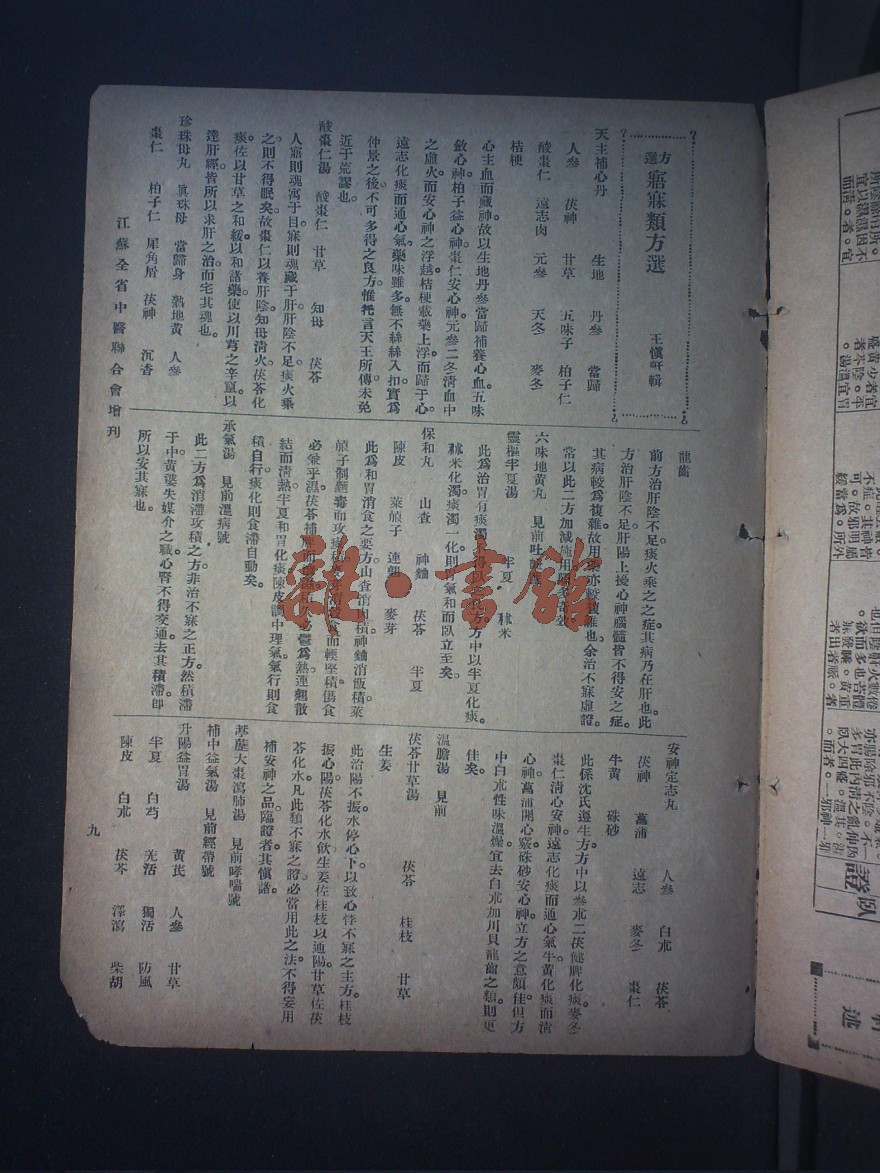 選方
寤寐類方選
王慎軒輯
天王補心丹 生地 丹參 當歸
人參 茯神 甘草 五味子 柏子仁
酸棗仁 遠志肉 元參 天冬 麥冬
桔梗
心主血而藏神。故以生地丹參當歸補養心血。五味
斂心神。柏子益心神。棗仁安心神。元參二冬清血中
之虛火。而安心神之浮越。桔梗載藥上浮。而歸于心。
遠志化痰而通心氣。藥味雖多。無不絲絲入扣。實為
仲景之後不可多得之良方。惟托言天王所傳。未免
近于荒謬也。
酸棗仁湯 酸棗仁 甘草 知母 茯苓
人寤則魂寓于目。寐則魂藏于肝。肝陰不足。痰火乘
之。則不得眠矣。故棗仁以養肝陰。知母清火。茯苓化
痰。佐以甘草之和緩。以和諸藥。使以川芎之辛竄。以
達肝經。皆所以求肝之治。而宅其魂也。
珍珠母丸 眞珠母 當歸身 熟地黃 人參
棗仁 柏子仁 犀角屑 茯神 沉香
龍齒
前方治肝陰不足。痰火乘之之症。其病乃在肝也。此
方治肝陰不足。肝陽上擾。心神腦髓。皆不得安之症。
其病較為複雜。故用藥亦較複雜也。余治不寐虛證。
常以此二方加減施用。頗多奇效
六味地黃丸 見前吐
靈樞半夏湯 半夏 秫米
此為治胃有痰濁。不得臥之良方。方中以半夏化痰。
秫米化濁。痰濁一化。則胃氣和而臥立至矣。
保和丸 山查 神麯 茯苓 半夏
陳皮 萊菔子 連翹 麥芽
此為和胃消食之要方。山查消肉積。神麯消飯積。萊
菔子制麵毒而攻痰積。麥芽消穀食而輭堅積。傷食
必兼乎濕。茯苓補脾而滲濕。積久必鬱為熱。連翹散
結而清熱。半夏和胃化痰。陳皮調中理氣。氣行則食
積自行。痰化則食滯自動矣。
承氣湯 見前溫病號
此二方為消滯攻積之方。非治不寐之正方。然積滯
于中。黃婆失媒介之職。心腎不得交通。去其積滯。卽
所以安其寐也。
安神定志丸 人參 白朮 茯苓
茯神 菖蒲 遠志 麥冬 棗仁
牛黃 硃砂
此係沈氏遵生方。方中以參朮二茯健脾化痰。麥冬
棗仁清心安神。遠志化痰而通心氣。牛黃化痰而清
心神。菖蒲開心竅。硃砂安心神。立方之意頗佳。但方
中白朮性味溫燥。宜去白朮。加川貝龍齒之類。則更
佳矣。
溫膽湯 見前
茯苓甘草湯 茯苓 桂枝 甘草
生姜
此治陽不振。水停心下。以致心悸不寐之主方。桂枝
振心陽。茯苓化水飲。生姜佐桂枝以通陽。甘草佐茯
苓化水。凡此類不寐之證。必當用此之法。不得妄用
補安神之品。臨證者其愼諸。
葶藶大棗瀉肺湯 見前哮喘號
補中益氣湯 見前經帶號
升陽益胃湯 黃芪 人參 甘草
半夏 白芍 羌活 獨活 防風
陳皮 白朮 茯苓 澤瀉 柴胡
江蘇全省中醫聯合會增刊
九
雜·書館